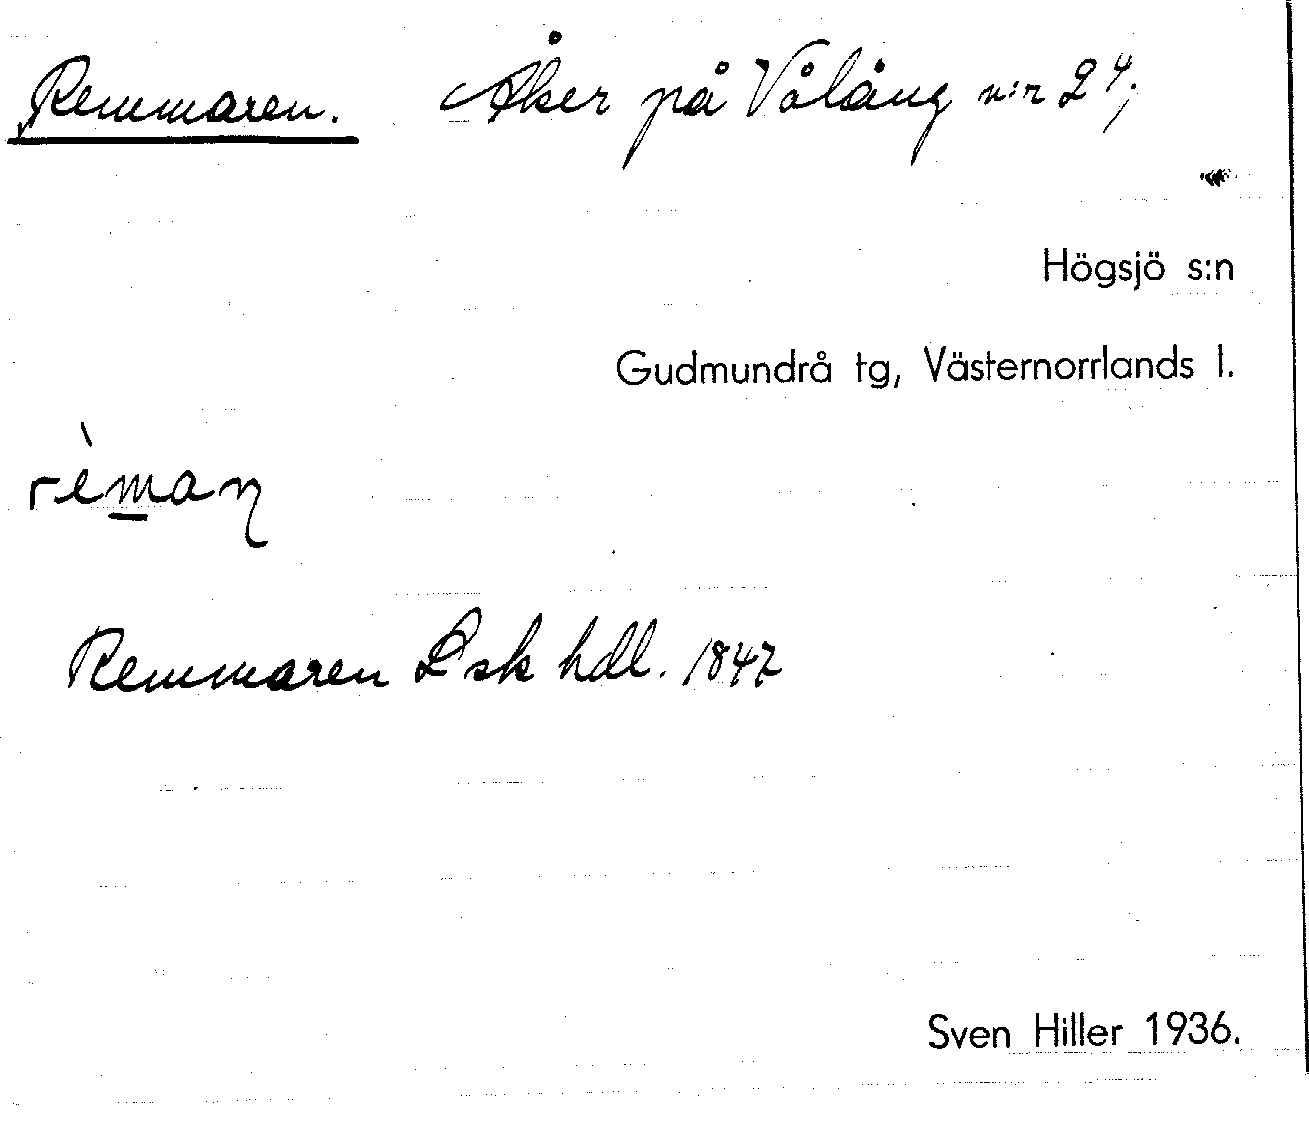 Remmaren. Åker på Vålång n:r 2⁴;
Högsjö s:n
Gudmundrå tg, Västernorrlands l.
rèman
Remmaren Lsk hdl. 1847
Sven Hiller 1936.